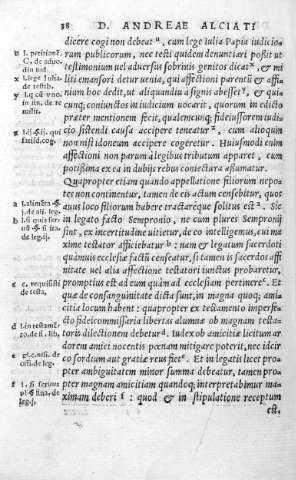 38 D. ANDREAE ALCIATI
dicere cogi non debeat u, cum lege Iulia Papia iudicio
rum publicorum, nec testi quidem denuntiari possit ut
testimonium vel aduersus sobrinis genitos dicat x & mi
liti emansori detur uenia, qui affectioni parentũ & affin
nium hoc dedit, ut aliquandiu a signis abesset y, & qui
cunq; coniunctos in iudicium uocarit, quorum in edicto
prater mentionem fecit, qualemcunq; fideiussorem iudi
cio sistendi causa accipere teneatur z, cum alioquin
non nisi idoneum accipere cogeretur. Huiusmodi enim
affectioni non parum a legibus tributum apparet, cum
potissima ex ea in dubijs rebus coniectura assumatur.
Quapropter etiam quando appellatione filiorum nepo
tes non continentur, tamen de eis actum censebitur, quos
auus loco filiorum habere tractareque solitus est a. Sic
in legato facto Sempronio, ne cum plures Sempronij
sint, ex incertitudine uitietur, de eo intelligemus, cui ma
xime testator afficiebatur b: nam & legatum sacerdoti
quamuis ecclesiæ factũ censeatur, si tamen is sacerdos affi
nitate uel alia affectione testatori iunctus probaretur,
promptius est ad eum quàm ad ecclesiam pertinere c. Et
quæ de consanguinitate dicta sunt, in magna quoq; ami
citia locum habent: quapropter ex testamento imperfe
cto fideicommissaria libertas alumnæ ob magnam testa-
toris dilectionem debetur d. Iudex ob amicitiæ licitum ar
dorem amici nocentis pœnam mitigare poterit, nec idcir
co sordium aut gratiæ reus fiet e. Et in legatis licet pro-
pter ambiguitatem minor summa debeatur, tamen pro
pter magnam amicitiam quandoq; interpretabimur ma
ximam deberi f: quod & in stipulatione receptum
est.
x Lege Iulia
de testib.
c c. requisisti
de testa.